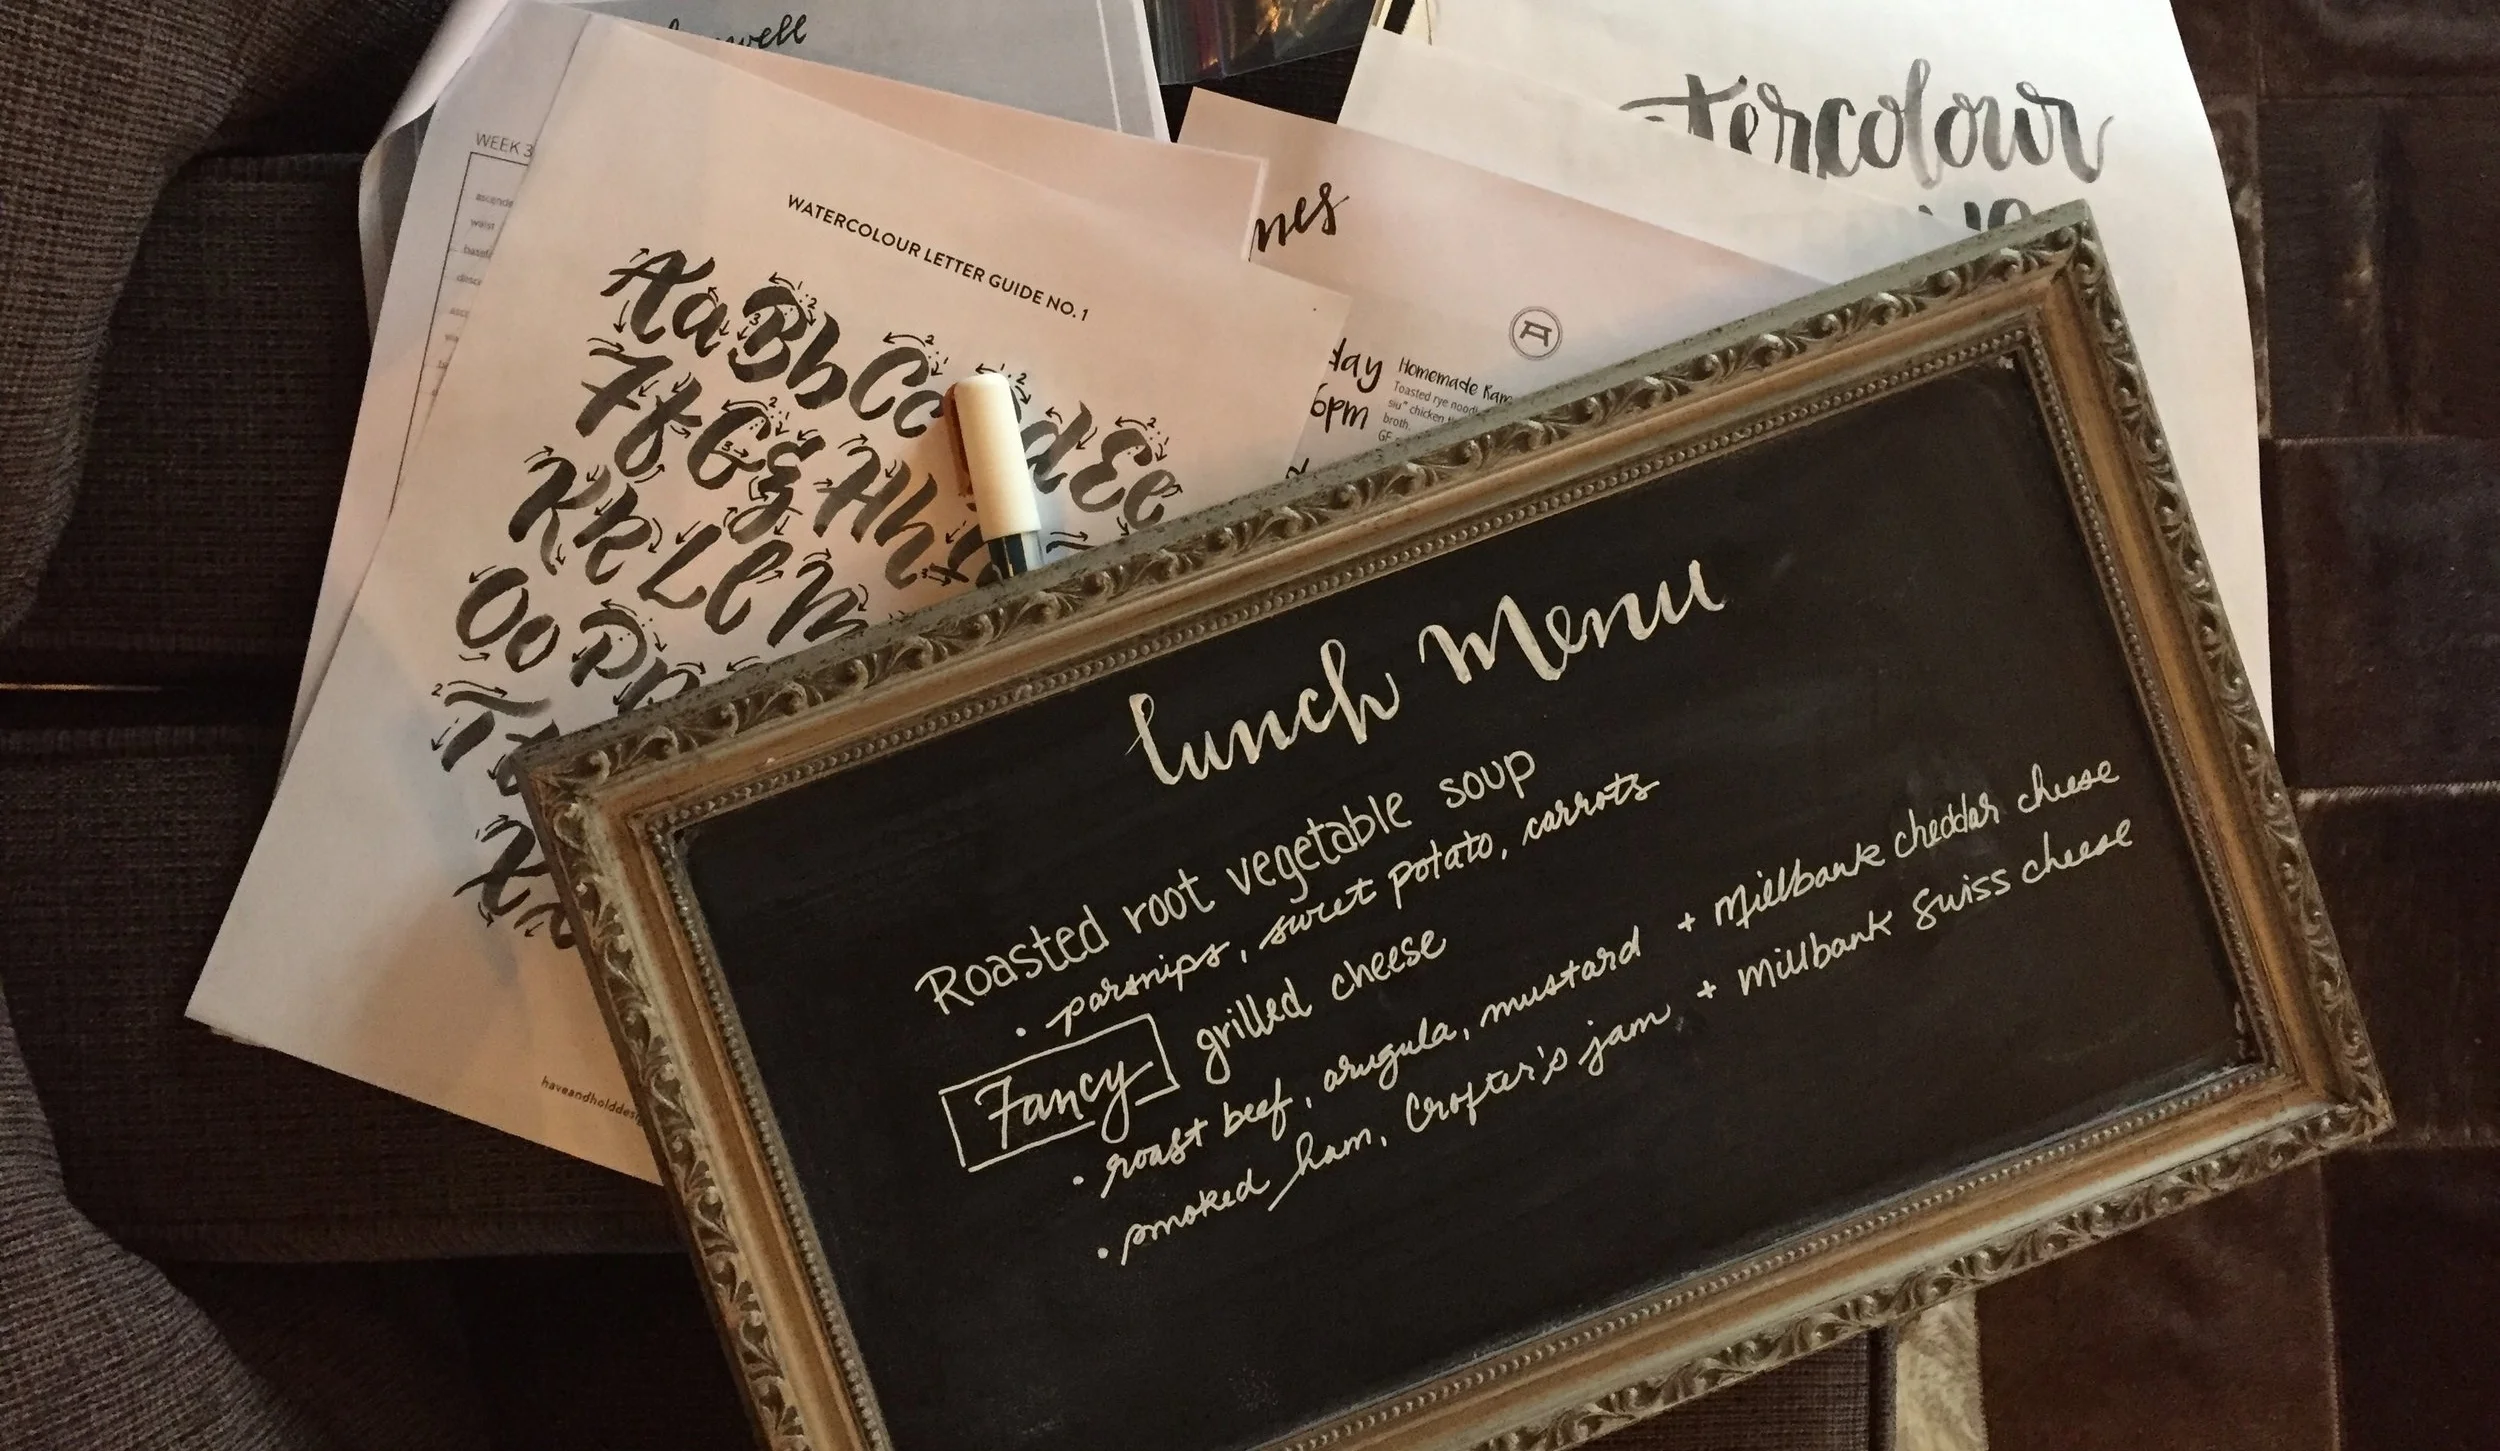 WEEK 3
waist
WATERCOLOUR LETTER GUIDE NO. 1
Aa Bb Cc d Ee
Ff Gg Hh
Kk Ll M
Oo Pp
T
Xx
nes
tercolour
day
6pm
Homemade Ram
Toasted rye nood
siu" chicken
broth.
GF
haveandholddes
lunch Menu
Roasted root vegetable soup
• parsnips, sweet potato, carrots
Fancy grilled cheese
• roast beef, arugula, mustard + Millbank cheddar cheese
• smoked ham, Crofter's jam + Millbank Swiss cheese